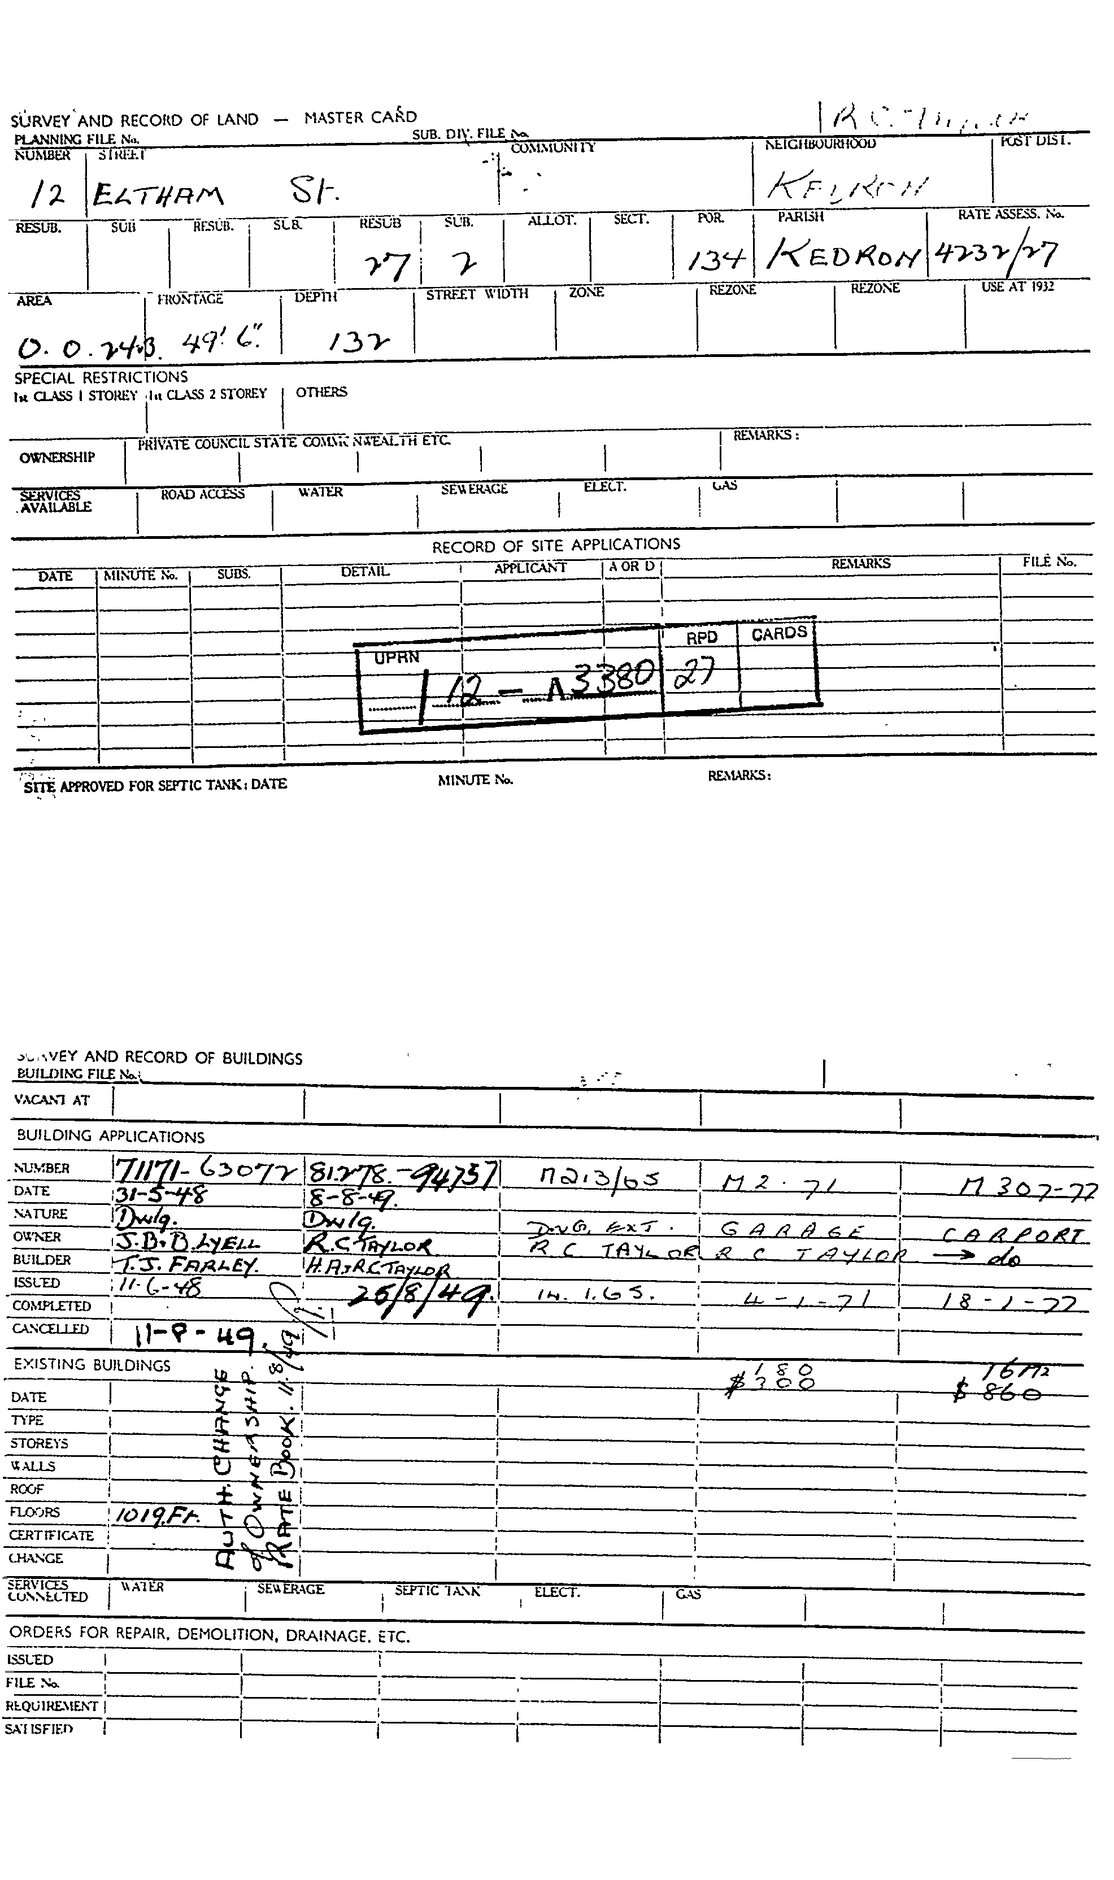 SURVEY AND RECORD OF LAND — MASTER CARD
PLANNING FILE No. SUB. DIV. FILE No.
NUMBER STREET COMMUNITY NEIGHBOURHOOD POST DIST.
12 ELTHAM St. KEDRON
RESUB. SUB RESUB. SUB. RESUB SUB. ALLOT. SECT. POR. PARISH RATE ASSESS. No.
27 2 134 KEDRON 4232/27
AREA FRONTAGE DEPTH STREET WIDTH ZONE REZONE REZONE USE AT 1932
0. 0. 49' 6". 132
SPECIAL RESTRICTIONS
1st CLASS 1 STOREY 1st CLASS 2 STOREY OTHERS
PRIVATE COUNCIL STATE COMMONWEALTH ETC. REMARKS:
OWNERSHIP
SERVICES AVAILABLE ROAD ACCESS WATER SEWERAGE ELECT. GAS
RECORD OF SITE APPLICATIONS
DATE MINUTE No. SUBS. DETAIL APPLICANT A OR D REMARKS FILE No.
UPRN RPD CARDS
12 - A3380 27
SITE APPROVED FOR SEPTIC TANK: DATE MINUTE No. REMARKS:
SURVEY AND RECORD OF BUILDINGS
BUILDING FILE No.
VACANT AT
BUILDING APPLICATIONS
NUMBER 71171-63072 81278.-94757 M213/65 M2.71 M307-77
DATE 31-5-48 8-8-49.
NATURE Dwlg. Dwlg. DWG. EXT. GARAGE CARPORT
OWNER J.B.B.LYELL R.C.TAYLOR R C TAYLOR R C TAYLOR → do
BUILDER T.J. FARLEY. H.A.&R.C.TAYLOR
ISSUED 11-6-48 25/8/49. 14.1.65. 4-1-71 18-1-77
COMPLETED
CANCELLED 11-8-49.
EXISTING BUILDINGS 180 16M2
$300 $860
DATE
TYPE
STOREYS
WALLS
ROOF
FLOORS 1019.Ft.
CERTIFICATE
CHANGE
AUTH. CHANGE
of OWNERSHIP.
RATE BOOK. 11.8/49
SERVICES CONNECTED WATER SEWERAGE SEPTIC TANK ELECT. GAS
ORDERS FOR REPAIR, DEMOLITION, DRAINAGE, ETC.
ISSUED
FILE No.
REQUIREMENT
SATISFIED